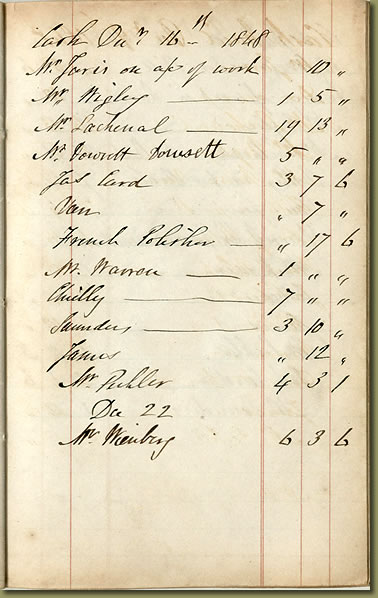 Cash Decr 16 – 1848
Mr Jarvis on a/c of work 10 "
Mr Wigley 1 5 "
Mr Lachenal 19 13 "
Mr Dowsett Dowsett 5 " "
Jas Card 3 7 6
Van " 7 "
French Polisher " 17 6
Mr Warren 1 " "
Chidley 7 " "
Saunders 3 10 "
James " 12 "
Mr 4 3 1
Dec 22
Mr Wienberg 6 3 6